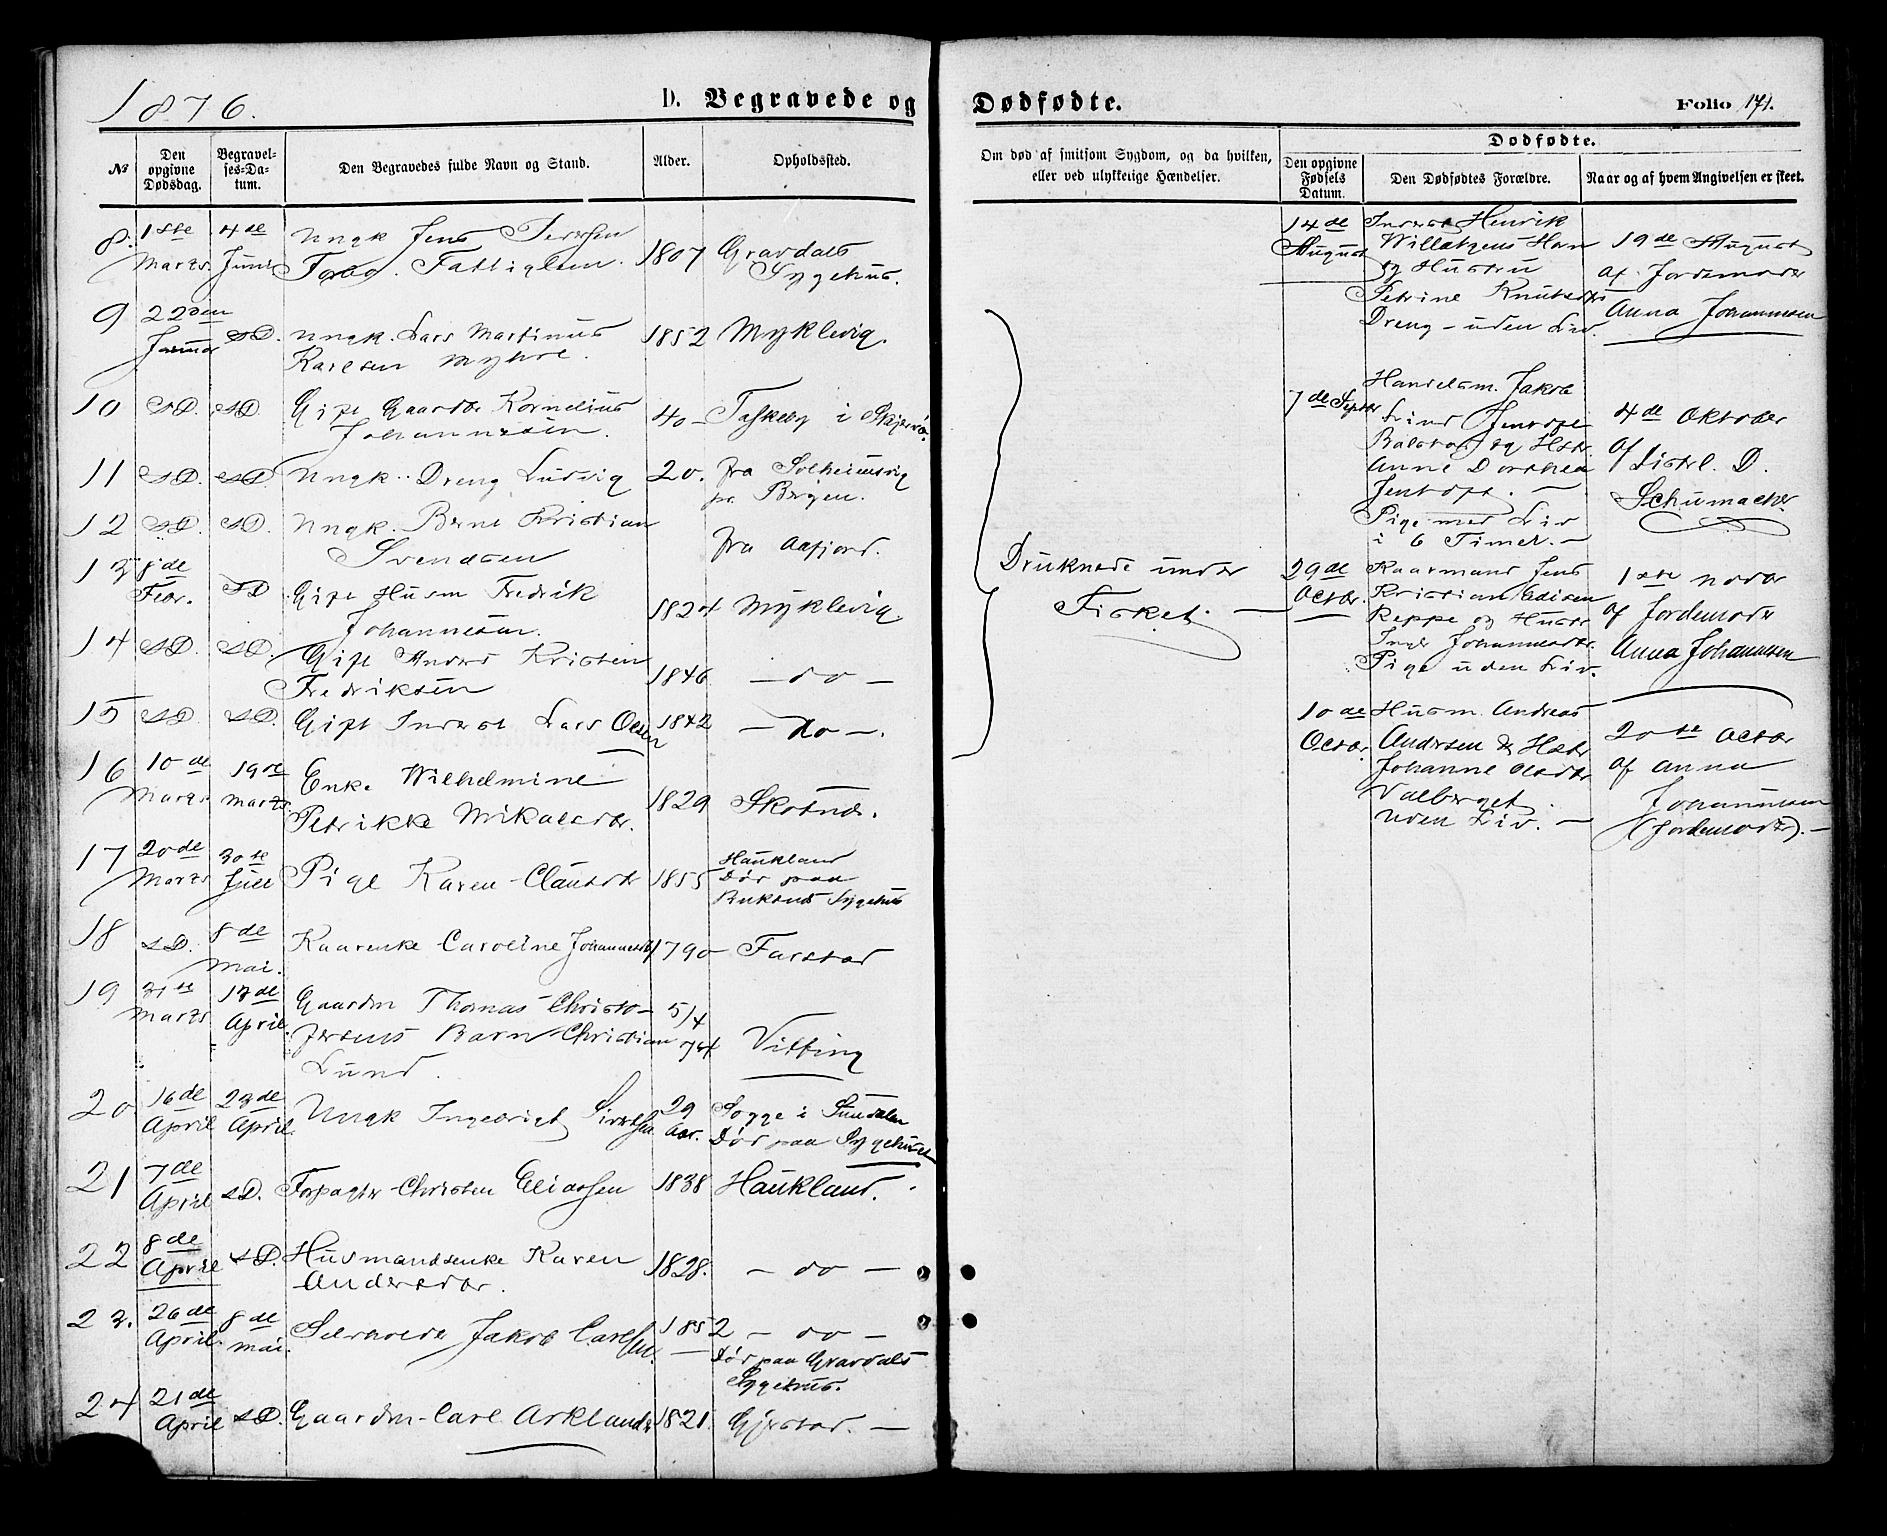 1876.
D. Begravede og
Dødfødte.
Folio 171.
№
Den opgivne Dødsdag.
Begravelses-Datum.
Den Begravedes fulde Navn og Stand.
Alder.
Opholdssted.
Om død af smitsom Sygdom, og da hvilken,
eller ved ulykkelige Hændelser.
Dødfødte.
Den opgivne Fødsels Datum.
Den Dødfødtes Forældre.
Naar og af hvem Angivelsen er skeet.
8. 1ste Marts 4de Juni Ungk Jens 1807 Gravdals
Sygehus.
9 22den Januar s.D. Ungk. Lars Martinus 1852 Myklevig.
Karlsen Myhre.
10 s.D. s.D. Gift Gaardbr Kornelius 40 – i Skjervø.
Johannesen.
11 s.D. s.D. Ungk. Dreng Ludvig 20. fra Solheimsvig
pr Bergen.
12 s.D. s.D. Ungk. Bernt Kristian
Svendsen fra Aafjord.
13 8de Febr. s.D. Gift Husm Fredrik 1824 Myklevig
Johannesen.
14 s.D. s.D. Gift Anders Kristen 1846 – do –
Fredriksen
15 s.D. s.D. Gift Inderst Lars Olsen 1842 – do –.
16 10de Marts 19de Marts. Enke Wilhelmine
Petrikke Mikalsdtr. 1829 Skotnæs.
17 20de Marts 30te Juli Pige Karen Clausdtr 1855 Haukland
Død paa
Buksnes Sygehus
18 s.D. 8de Mai. Kaarenke Caroline Johannesdtr 1790 Farstad
19 31te Marts 13de April. Gaardm Thomas Christo-
fersens Barn Christian 5/4 74 Vitting
Lund.
20 16de April 23de April. Ungk Ingebrigt Sivertsen 29 Aar. Sogge i Sundalen
Død paa Sygehuset
21 7de April s.D. Forpagter Christen Eliassen 1838 Haukland.
22 8de April s.D. Husmandsenke Karen 1828. – do –
Andersdtr.
23. 26de April. 8de Mai. Selveier Jakob Carlsen. 1852 – do –
Død paa Gravdals
Sygehus.
24 21de April s.D. Gaardm Carl 1821. Gjerstad. –
Druknede under
Fisket. –
14de August Inderst Henrik
Willatzens Han
og Hustru
Petrine Knutsdtr
Dreng – uden Liv.
19de August
af Jordemoder
Anna Johannesen
7de Septbr Handelsm. Jakob
Lind Jentoft
Balstad og Hstr
Anne Dorthea
Jentoft. –
Pige med Liv
i 6 Timer. –
4de Oktober
af Distrl. D.
Schumacher
29de Octbr. Kaarmand Jens
Kristian Edisen
Reppe og Hustr
Inger Johannesdtr.
Pige uden Liv.
1ste Novbr
af Jordemodr
Anna Johannesen
10de Octbr. Husm. Andreas
Andersen & Hstr
Johanne Olsdtr
Valberget.
Uden Liv. –
20te Octbr
af Anna
Johannesen
(Jordemoder). –